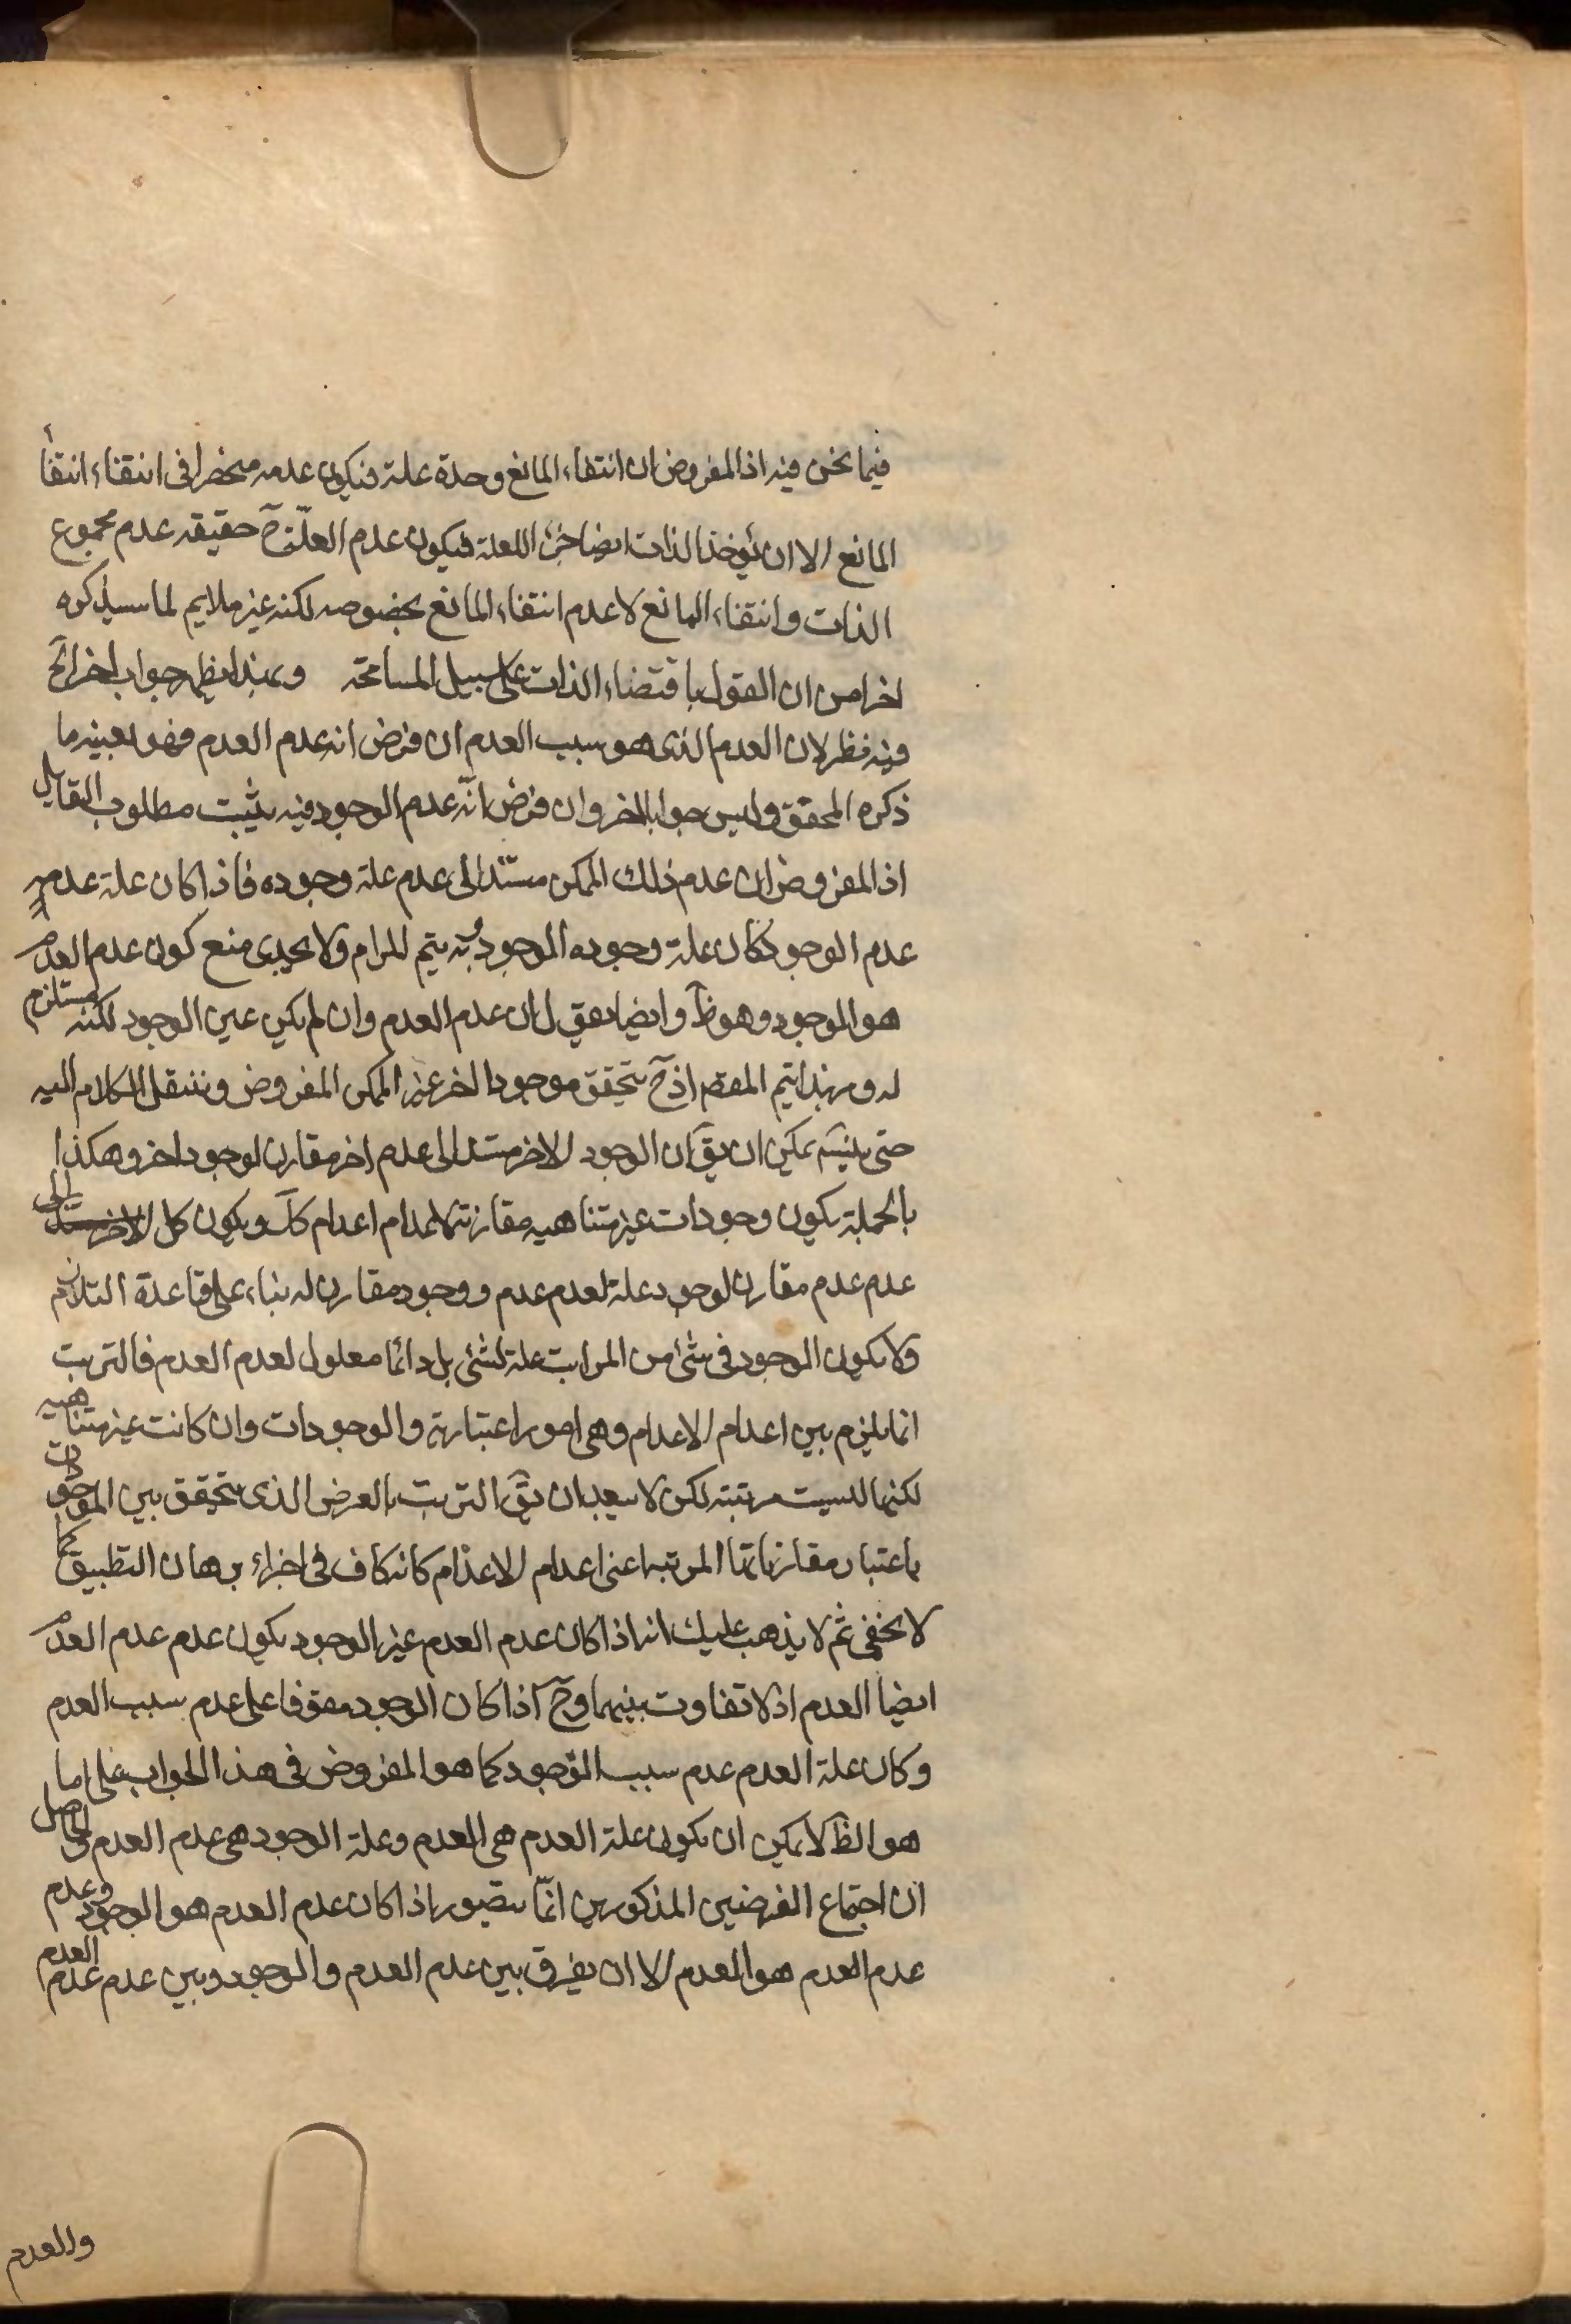 فيما نحن فيه اذ المفروض ان انتفاء المانع وحده علة فيكون عدمه منحصرا فى انتفاء انتفاء
المانع الا ان يؤخذ الذات ايضا جزء اللعلة فيكون عدم العلّة حَ حقيقه عدم مجموع
الذات وانتفاء المانع لا عدم انتفاء المانع بخصوصه لكنه غير ملايم لما سيذكره
اخرا من ان القول باقتضاء الذات على سبيل المسامحة وبهذا يظهر جواب اخر الخ
فيه نظر لان العدم الذى هو سبب العدم ان فرض انه عدم العدم فهو بعينه ما
ذكره المحقق وليس جوابا اخر وان فرض انّه عدم الوجود فيه يثبت مطلوب القايل
اذ المفروض ان عدم ذلك الممكن مستند الى عدم علة وجوده فاذا كان علة عدمه
عدم الوجود كان علة وجوده الموجود وبه يتم المرام ولا يجدى منع كون عدم العدم
هو الموجود وهو ظَ وايضا نقول ان عدم العدم وان لم يكن عين الوجود لكنه مستلزم
له وبهذا يتم المقصَ اذ حَ يتحقق موجود اخر غير الممكن المفروض وننتقل الكلام اليه
حتى يتسَ يمكن ان يقَ ان الوجود الاخر مستند الى عدم اخر مقارن لوجود اخر وهكذا
بالجملة يكون وجودات غير متناهيه مقارنة لاعدام اعدام كَك ويكون كل الاخر مستند الى
عدم عدم مقارن لوجود علة لعدم عدم ووجود مقارن له بناء على قاعدة التلازم
ولا يكون الوجود فى شئ من المراتب علة لشئ بل دائما معلول لعدم العدم فالترتب
انما يلزم بين اعدام الاعدام وهى امور اعتبارية والوجودات وان كانت غير متناهيه
لكنها ليست مرتبة لكن لا يبعد ان يقَ الترتب بالعرض الذى يتحقق بين الموجودات
باعتبار مقارناتها المرتبة اعنى اعدام الاعدام كانه كاف فى اجراء برهان التطبيق كما
لا يخفى ثم لا يذهب عليك انه اذا كان عدم العدم غير الوجود يكون عدم عدم العدم
ايضا العدم اذ لا تفاوت بينهما وحَ اذا كان الوجود موقوفا على عدم سبب العدم
وكان علة العدم عدم سبب الوجود كما هو المفروض فى هذا الجواب على ما
هو الظَ لا يمكن ان يكون علة العدم هى العدم وعلة الوجود هى عدم العدم والحاصل
ان اجتماع الفرضين المذكورين انّما يتصور اذا كان عدم العدم هو الوجود وعدم
عدم العدم هو العدم الا ان يفرق بين عدم العدم والوجود وبين عدم عدم العدم
والعدم